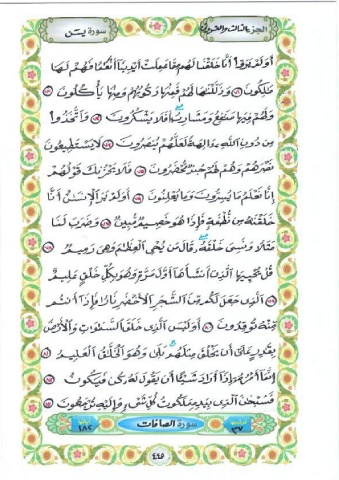 الجزء الثالث والعشرون
سورة يس
أَوَلَمْ يَرَوْا أَنَّا خَلَقْنَا لَهُم مِّمَّا عَمِلَتْ أَيْدِينَا أَنْعَامًا فَهُمْ لَهَا
مَالِكُونَ ٧١ وَذَلَّلْنَاهَا لَهُمْ فَمِنْهَا رَكُوبُهُمْ وَمِنْهَا يَأْكُلُونَ ٧٢
وَلَهُمْ فِيهَا مَنَافِعُ وَمَشَارِبُ أَفَلَا يَشْكُرُونَ ٧٣ وَاتَّخَذُوا
مِن دُونِ اللَّهِ آلِهَةً لَّعَلَّهُمْ يُنصَرُونَ ٧٤ لَا يَسْتَطِيعُونَ
نَصْرَهُمْ وَهُمْ لَهُمْ جُندٌ مُّحْضَرُونَ ٧٥ فَلَا يَحْزُنكَ قَوْلُهُمْ
إِنَّا نَعْلَمُ مَا يُسِرُّونَ وَمَا يُعْلِنُونَ ٧٦ أَوَلَمْ يَرَ الْإِنسَانُ أَنَّا
خَلَقْنَاهُ مِن نُّطْفَةٍ فَإِذَا هُوَ خَصِيمٌ مُّبِينٌ ٧٧ وَضَرَبَ لَنَا
مَثَلًا وَنَسِيَ خَلْقَهُ قَالَ مَن يُحْيِي الْعِظَامَ وَهِيَ رَمِيمٌ ٧٨
قُلْ يُحْيِيهَا الَّذِي أَنشَأَهَا أَوَّلَ مَرَّةٍ وَهُوَ بِكُلِّ خَلْقٍ عَلِيمٌ
٧٩ الَّذِي جَعَلَ لَكُم مِّنَ الشَّجَرِ الْأَخْضَرِ نَارًا فَإِذَا أَنتُم
مِّنْهُ تُوقِدُونَ ٨٠ أَوَلَيْسَ الَّذِي خَلَقَ السَّمَاوَاتِ وَالْأَرْضَ
بِقَادِرٍ عَلَىٰ أَن يَخْلُقَ مِثْلَهُم بَلَىٰ وَهُوَ الْخَلَّاقُ الْعَلِيمُ ٨١
إِنَّمَا أَمْرُهُ إِذَا أَرَادَ شَيْئًا أَن يَقُولَ لَهُ كُن فَيَكُونُ ٨٢
فَسُبْحَانَ الَّذِي بِيَدِهِ مَلَكُوتُ كُلِّ شَيْءٍ وَإِلَيْهِ تُرْجَعُونَ ٨٣
ترتيبها ٣٧
سورة الصافات
آياتها ١٨٢
٤٤٥